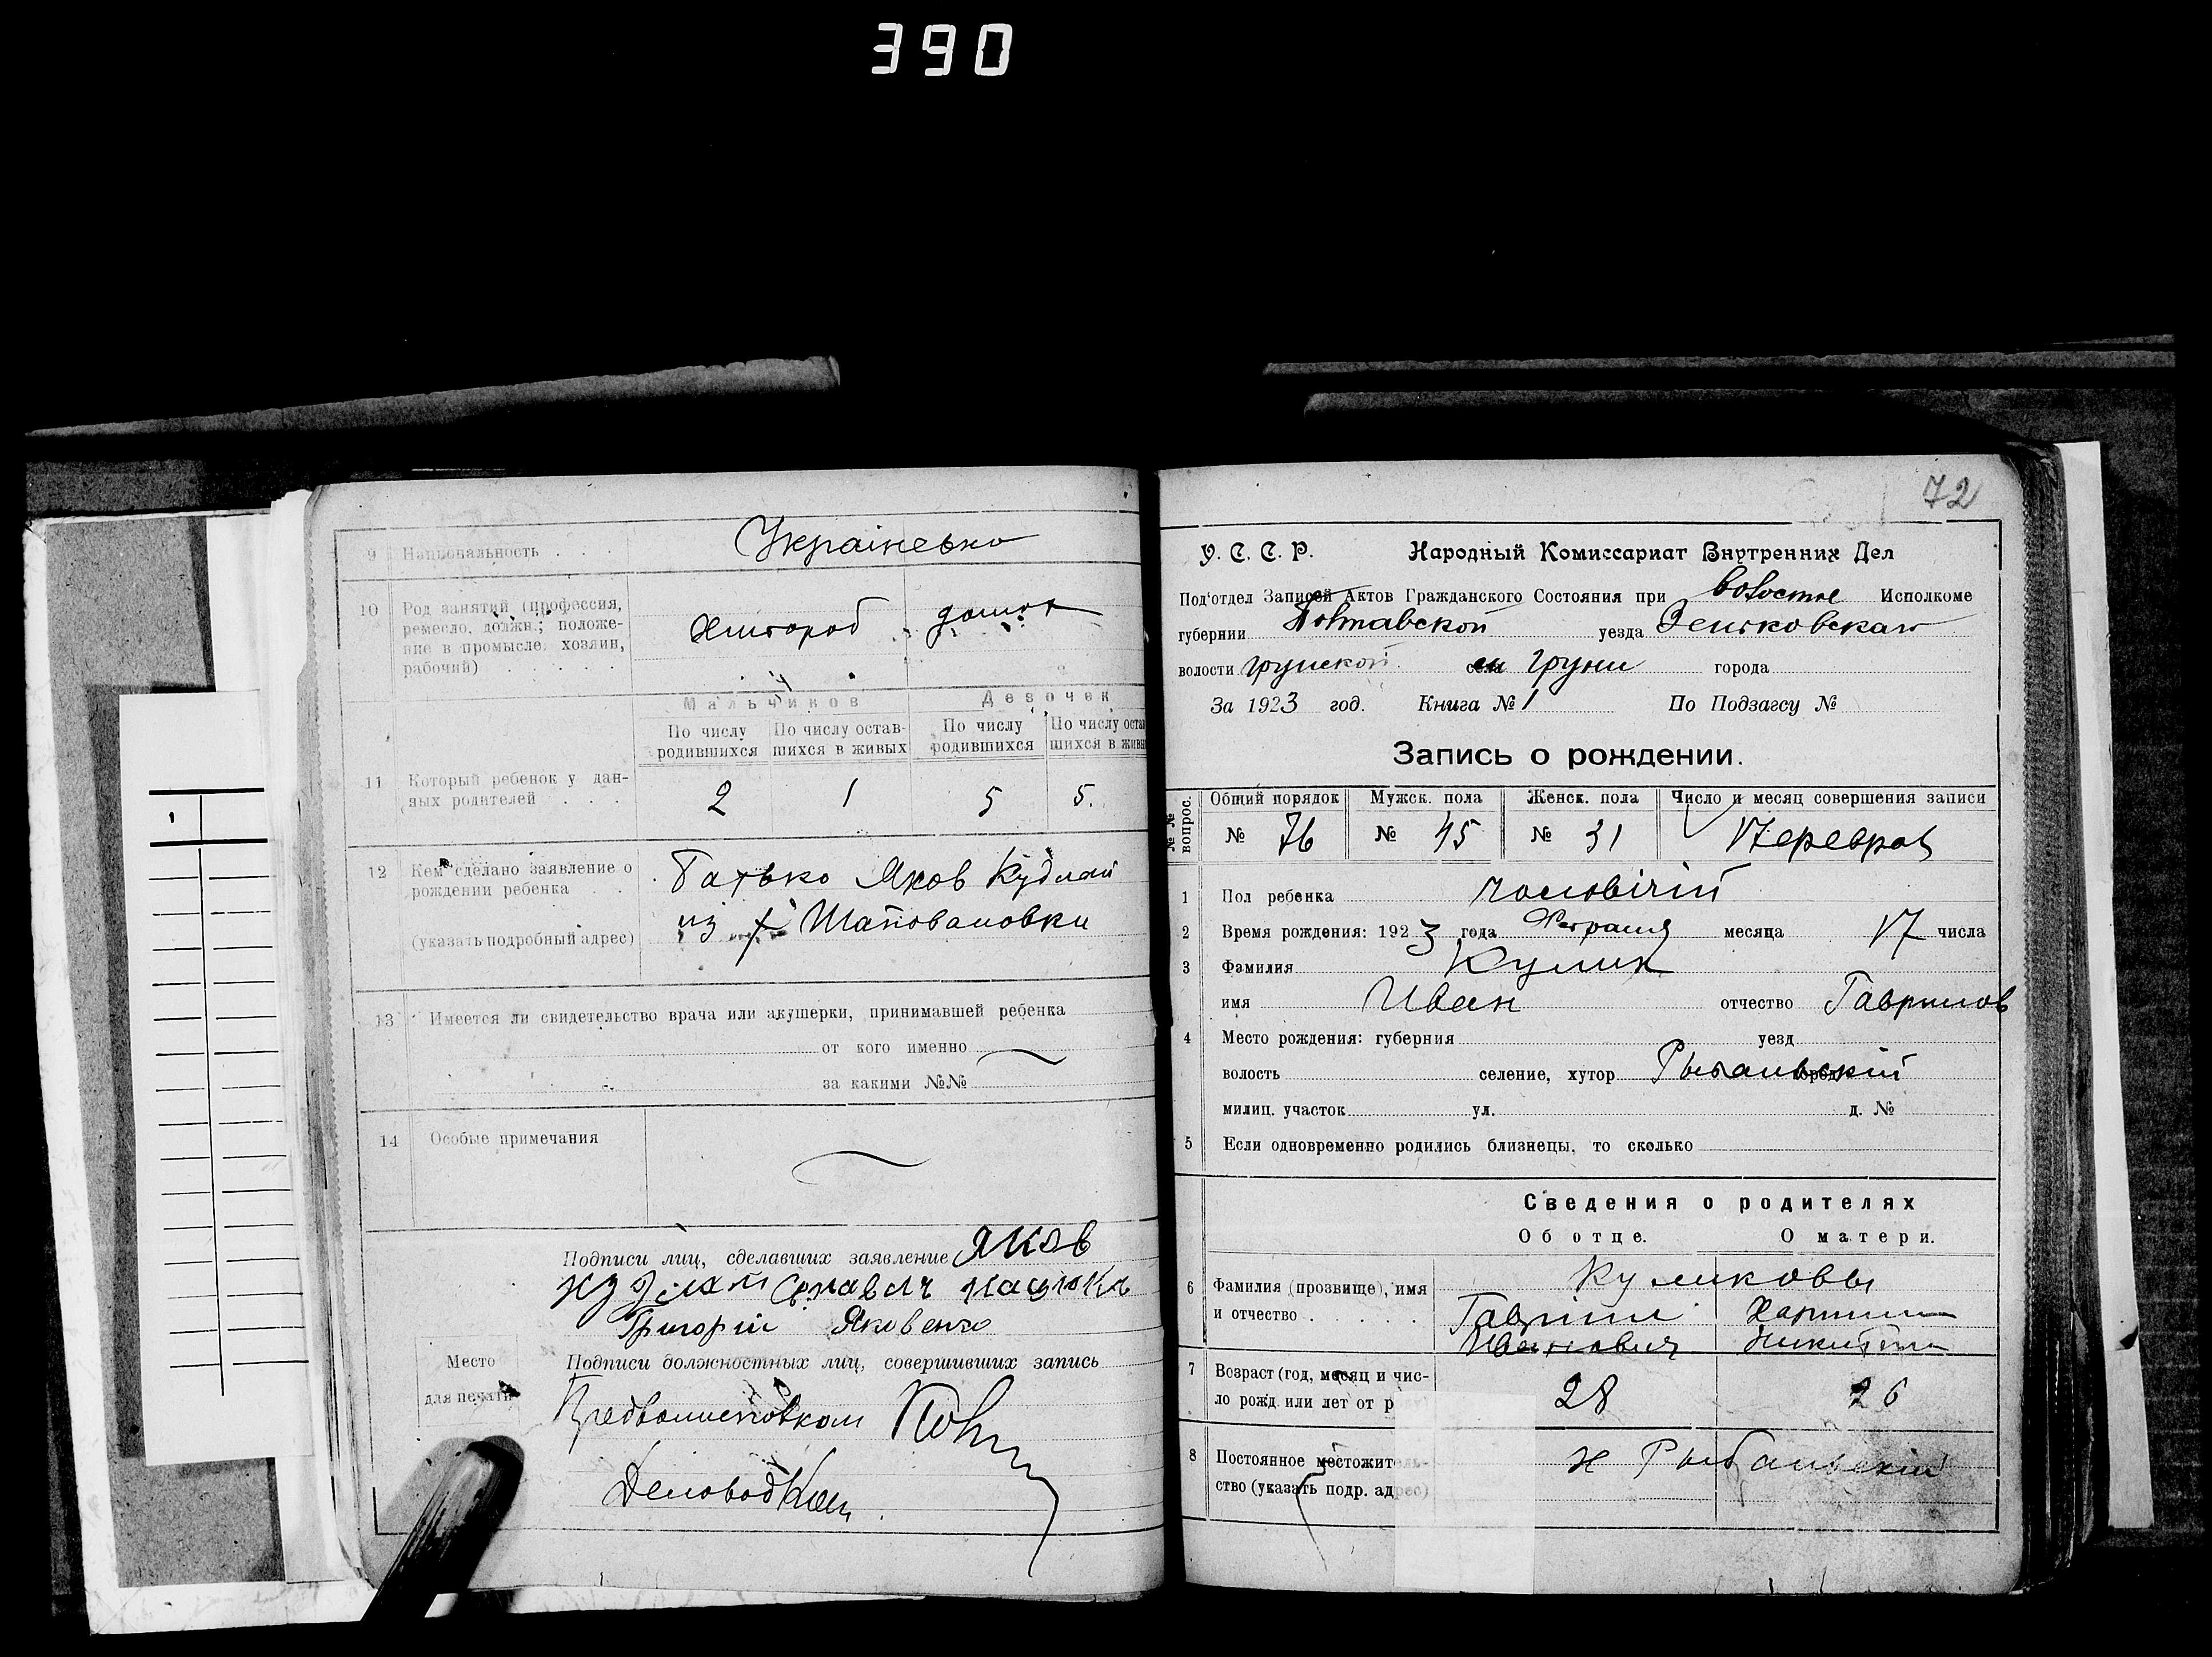 390
9 Национальность . . . Украінсько
10 Род занятий (профессия,
ремесло, должн.; положе-
ние в промысле: хозяин,
рабочий) . . . . .
Хлібороб
Мальчиков Девочек
По числу родившихся По числу остав-шихся в живых По числу родившихся По числу оста шихся в живы
11 Который ребенок у дан-
ных родителей . . . 2 1 5 5.
12 Кем сделано заявление о
рождении ребенка . .
(указать подробный адрес)
Батько Яков Кудлай
из х Шаповаловки
13 Имеется ли свидетельство врача или акушерки, принимавшей ребенка
от кого именно
за какими №№
14 Особые примечания
Подписи лиц, сделавших заявление Яков
Григорій Яковенко
Место
для печати
Подписи должностных лиц, совершивших запись
Предволисполком
Деловод
72
У. С. С. Р. Народный Комиссариат Внутренних Дел
Под'отдел Записей Актов Гражданского Состояния при волостне Исполкоме
губернии Полтавской уезда Зеньковская
волости грунской села Груни города
За 1923 год. Книга № 1 По Подзагсу №
Запись о рождении.
№№ вопрос. Общий порядок Мужск. пола Женск. пола Число и месяц совершения записи
№ 76 № 45 № 31
1 Пол ребенка чоловічій
2 Время рождения: 1923 года месяца 17 числа
3 Фамилия Кулик
имя Иван отчество Гаврилов
4 Место рождения: губерния уезд
волость селение, хутор Рыбальскій город
милиц. участок ул. д. №
5 Если одновременно родились близнецы, то сколько
Сведения о родителях
Об отце. О матери.
6 Фамилия (прозвище), имя
и отчество . . . . .
Куликовы
Гавріил
Иванович
7 Возраст (год, месяц и чис-
ло рожд. или лет от р 28 26
8 Постоянное местожитель-
ство (указать подр. адрес)
х Рыбальскій
1